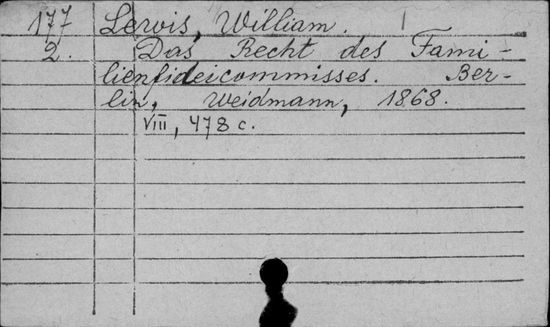 177 Lewis, William.
2. Das Recht des Fami-
lienfideicommisses. Ber-
lin, Weidmann, 1868.
VIII, 478 c.